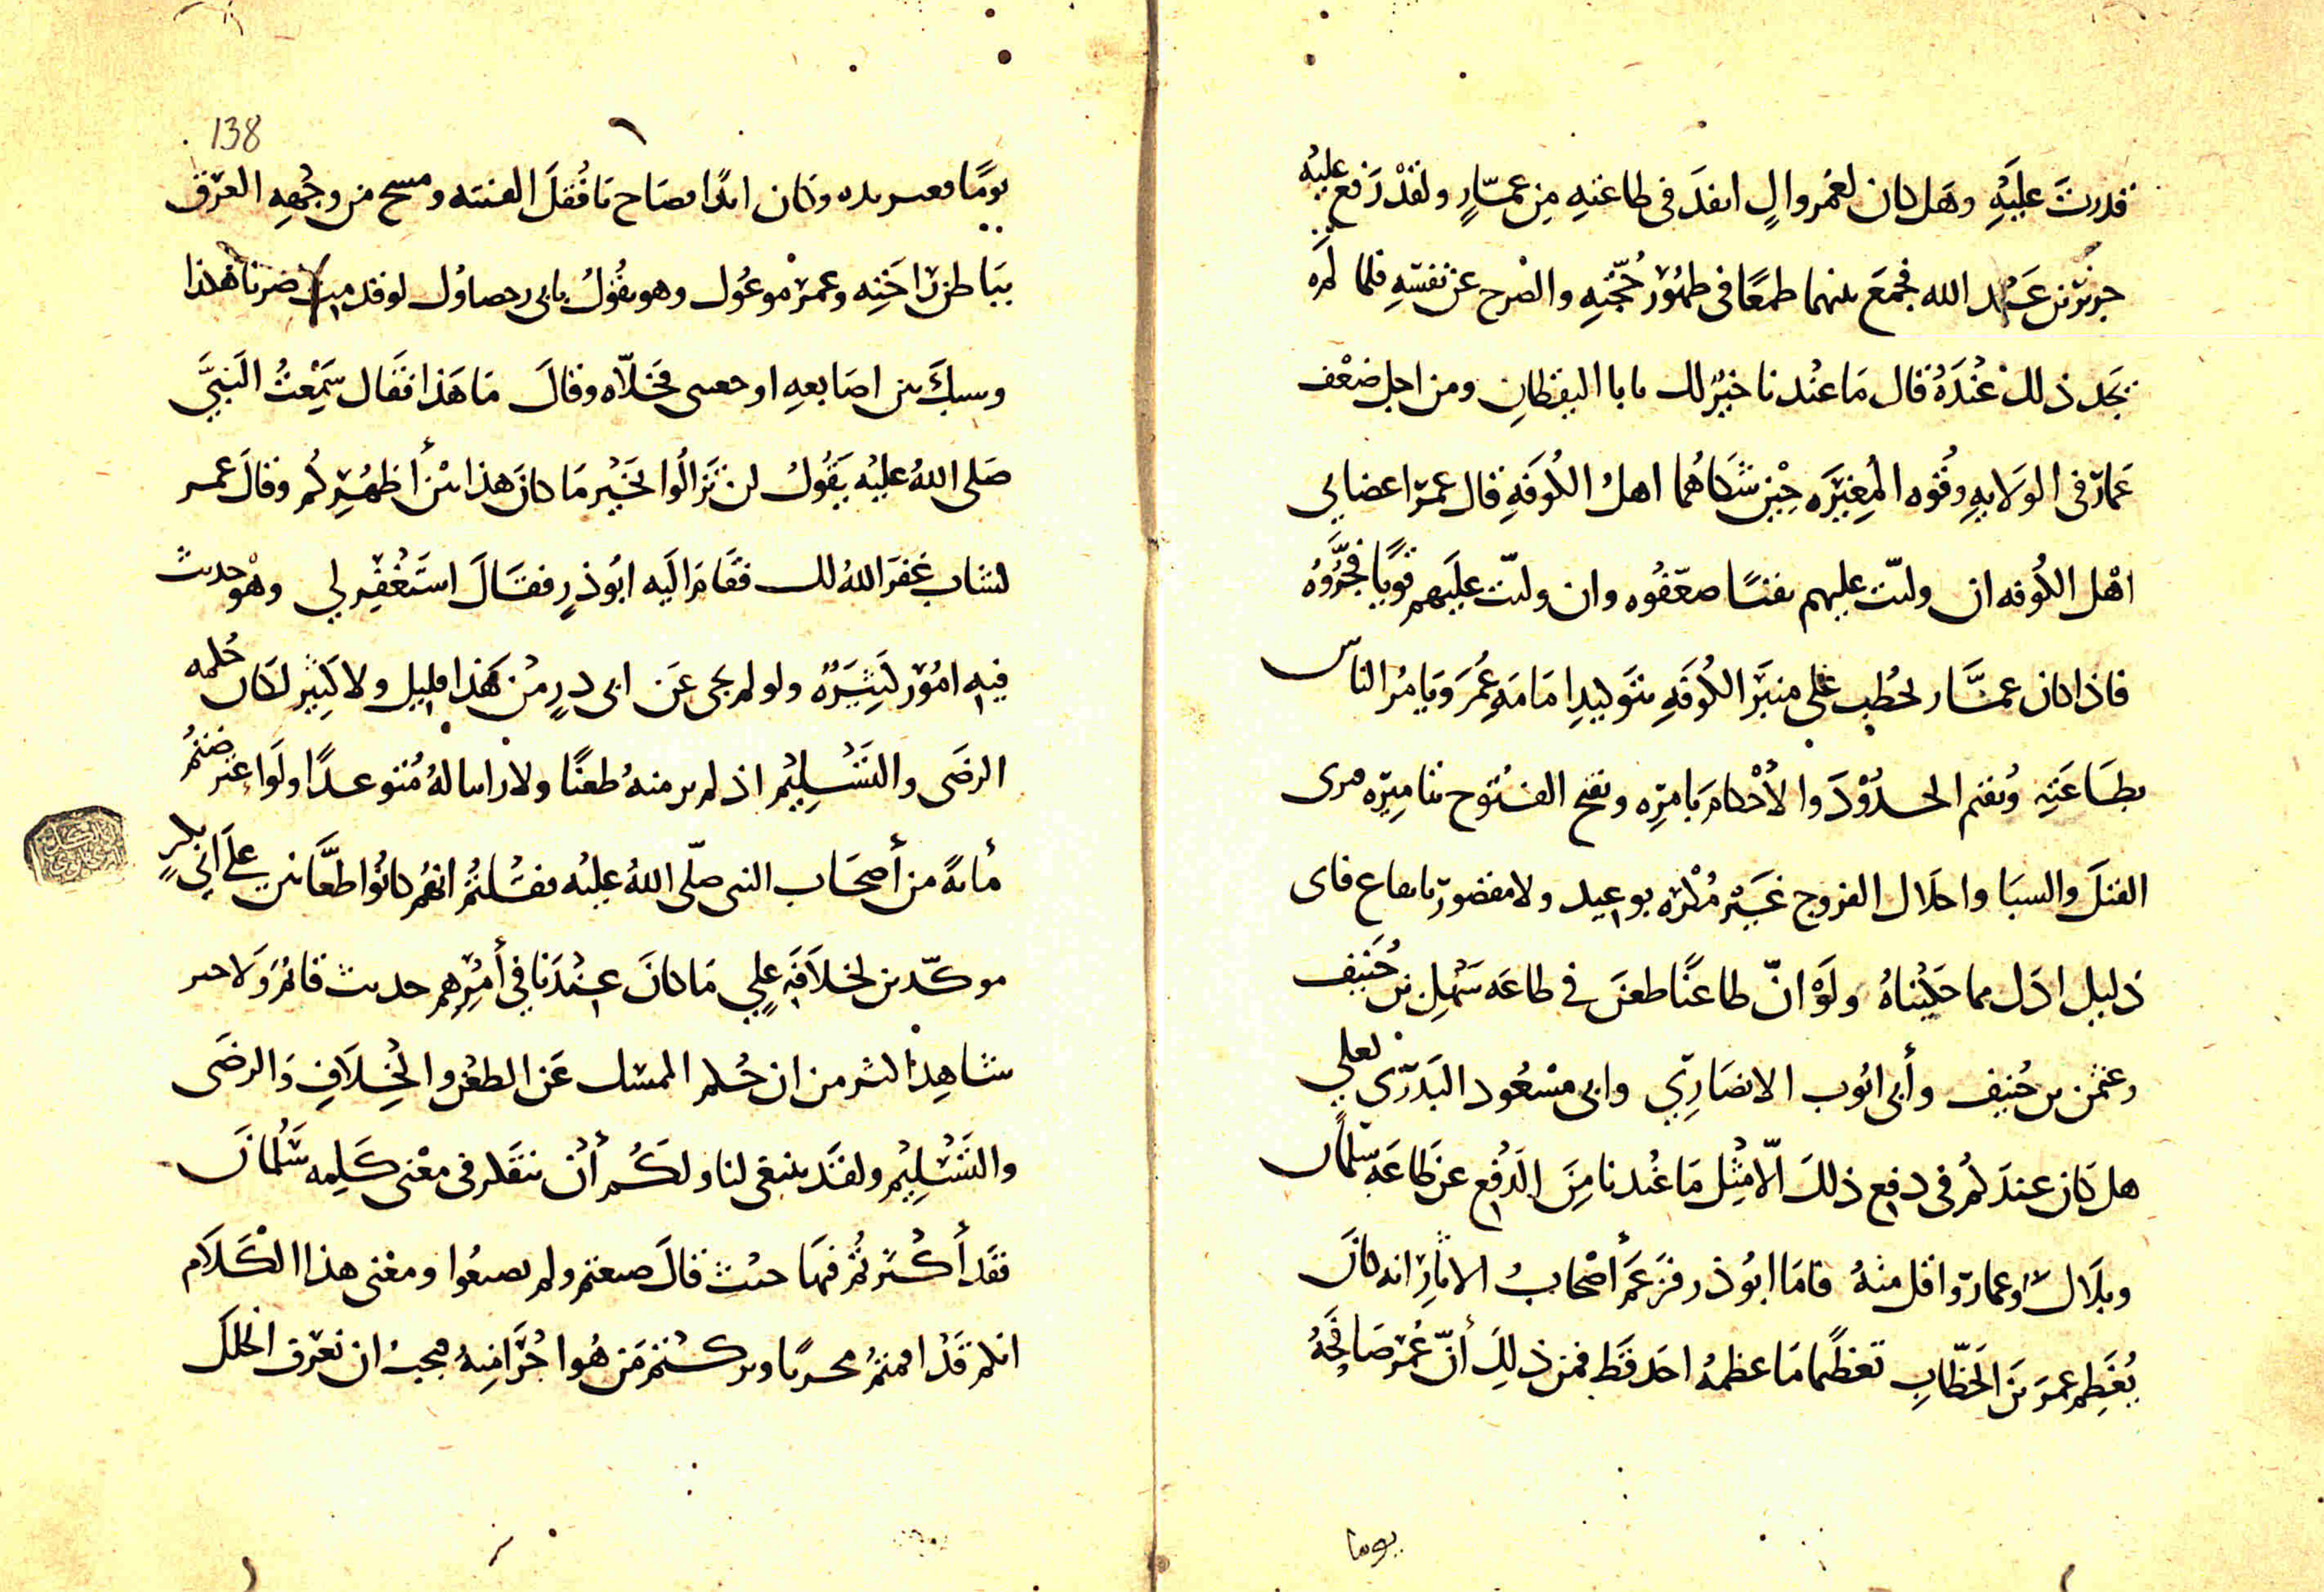 قدرت عليه وهل كان لعمر وال انفذ في طاعته من عمار ولقد رفع عليه
جرير بن عبد الله فجمع بينهما طمعا في ظهور حجته والصرح عن نفسه فلما لم
يجد ذلك عنده قال ما عندنا خير لك يا با اليقظان ومن اجل ضعف
عمار في الولايه وقوه المغيره حين شكاهما اهل الكوفه قال عمر اعضل بي
اهل الكوفه ان وليت عليهم تقيا ضعفوه وان وليت عليهم قويا فجروه
فاذا كان عمار يخطب على منبر الكوفه بتوليد امامه عمر ويامر الناس
بطاعته ويقيم الحدود والاحكام بامره ويفتح الفتوح بتاميره فيرى
القتل والسبا واحلال الفروج غير مكره بوعيد ولا مقصور بايقاع فاي
دليل ادل مما حكيناه ولو ان طاعنا طعن في طاعه سهل بن حنيف
وعثمن بن حنيف وأبي ايوب الانصاري وابي مسعود البدري لعلي
هل كان عندكم في دفع ذلك الا مثل ما عندنا من الدفع عن طاعه سلمان
وبلال وعمار واقل منه فاما ابو ذر فزعم أصحاب الاثار انه كان
يعظم عمر بن الخطاب تعظيما ما عظمه احد قط فمن ذلك أن عمر صافحه
يوما
138
يوما فعصر يده وكان ايدا فصاح يا قفل الفتنه ومسح من وجهه العرق
بباطن راحته وعمر موعوك وهو يقول بابي رحصاوك لو قد مت صرنا هكذا
وشبك بين اصابعه او حصى فخلاه وقال ما هذا فقال سمعت النبي
صلى الله عليه يقول لن تزالوا بخير ما كان هذا بين أظهركم وقال عمر
لشاب غفر الله لك فقام اليه ابو ذر فقال استغفر لي وهو حديث
فيه امور كثيره ولو لم يجي عن ابي ذر من هذا قليل ولا كثير لكان حكمه
الرضى والتسليم اذ لم ير منه طعنا ولا راينا له متوعدا ولو اعترضتم
مائة من أصحاب النبي صلى الله عليه فقلتم انهم كانوا طعانين على ابي بكر
موكدين لخلافه علي ما كان عندنا في أمرهم حديث قائم ولا خبر
شاهد اكثر من ان حكم الممسك عن الطعن والخلاف والرضى
والتسليم ولقد ينبغي لنا ولكم أن ننظر في معنى كلمه سلمان
فقد أكثرتم فيها حيث قال صنعتم ولم تصنعوا ومعنى هذا الكلام
انكم قد اقمتم مجزيا وتركتم من هو اجزا منه فيجب ان نعرف الخلل